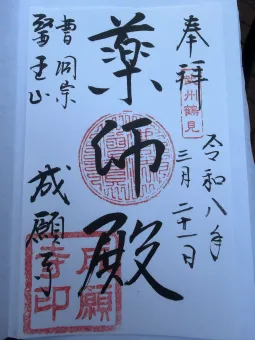 奉拝
州鶴見
令和八年
三月二十一日
薬師殿
曹洞宗
醫王山
成願寺
成願
寺印